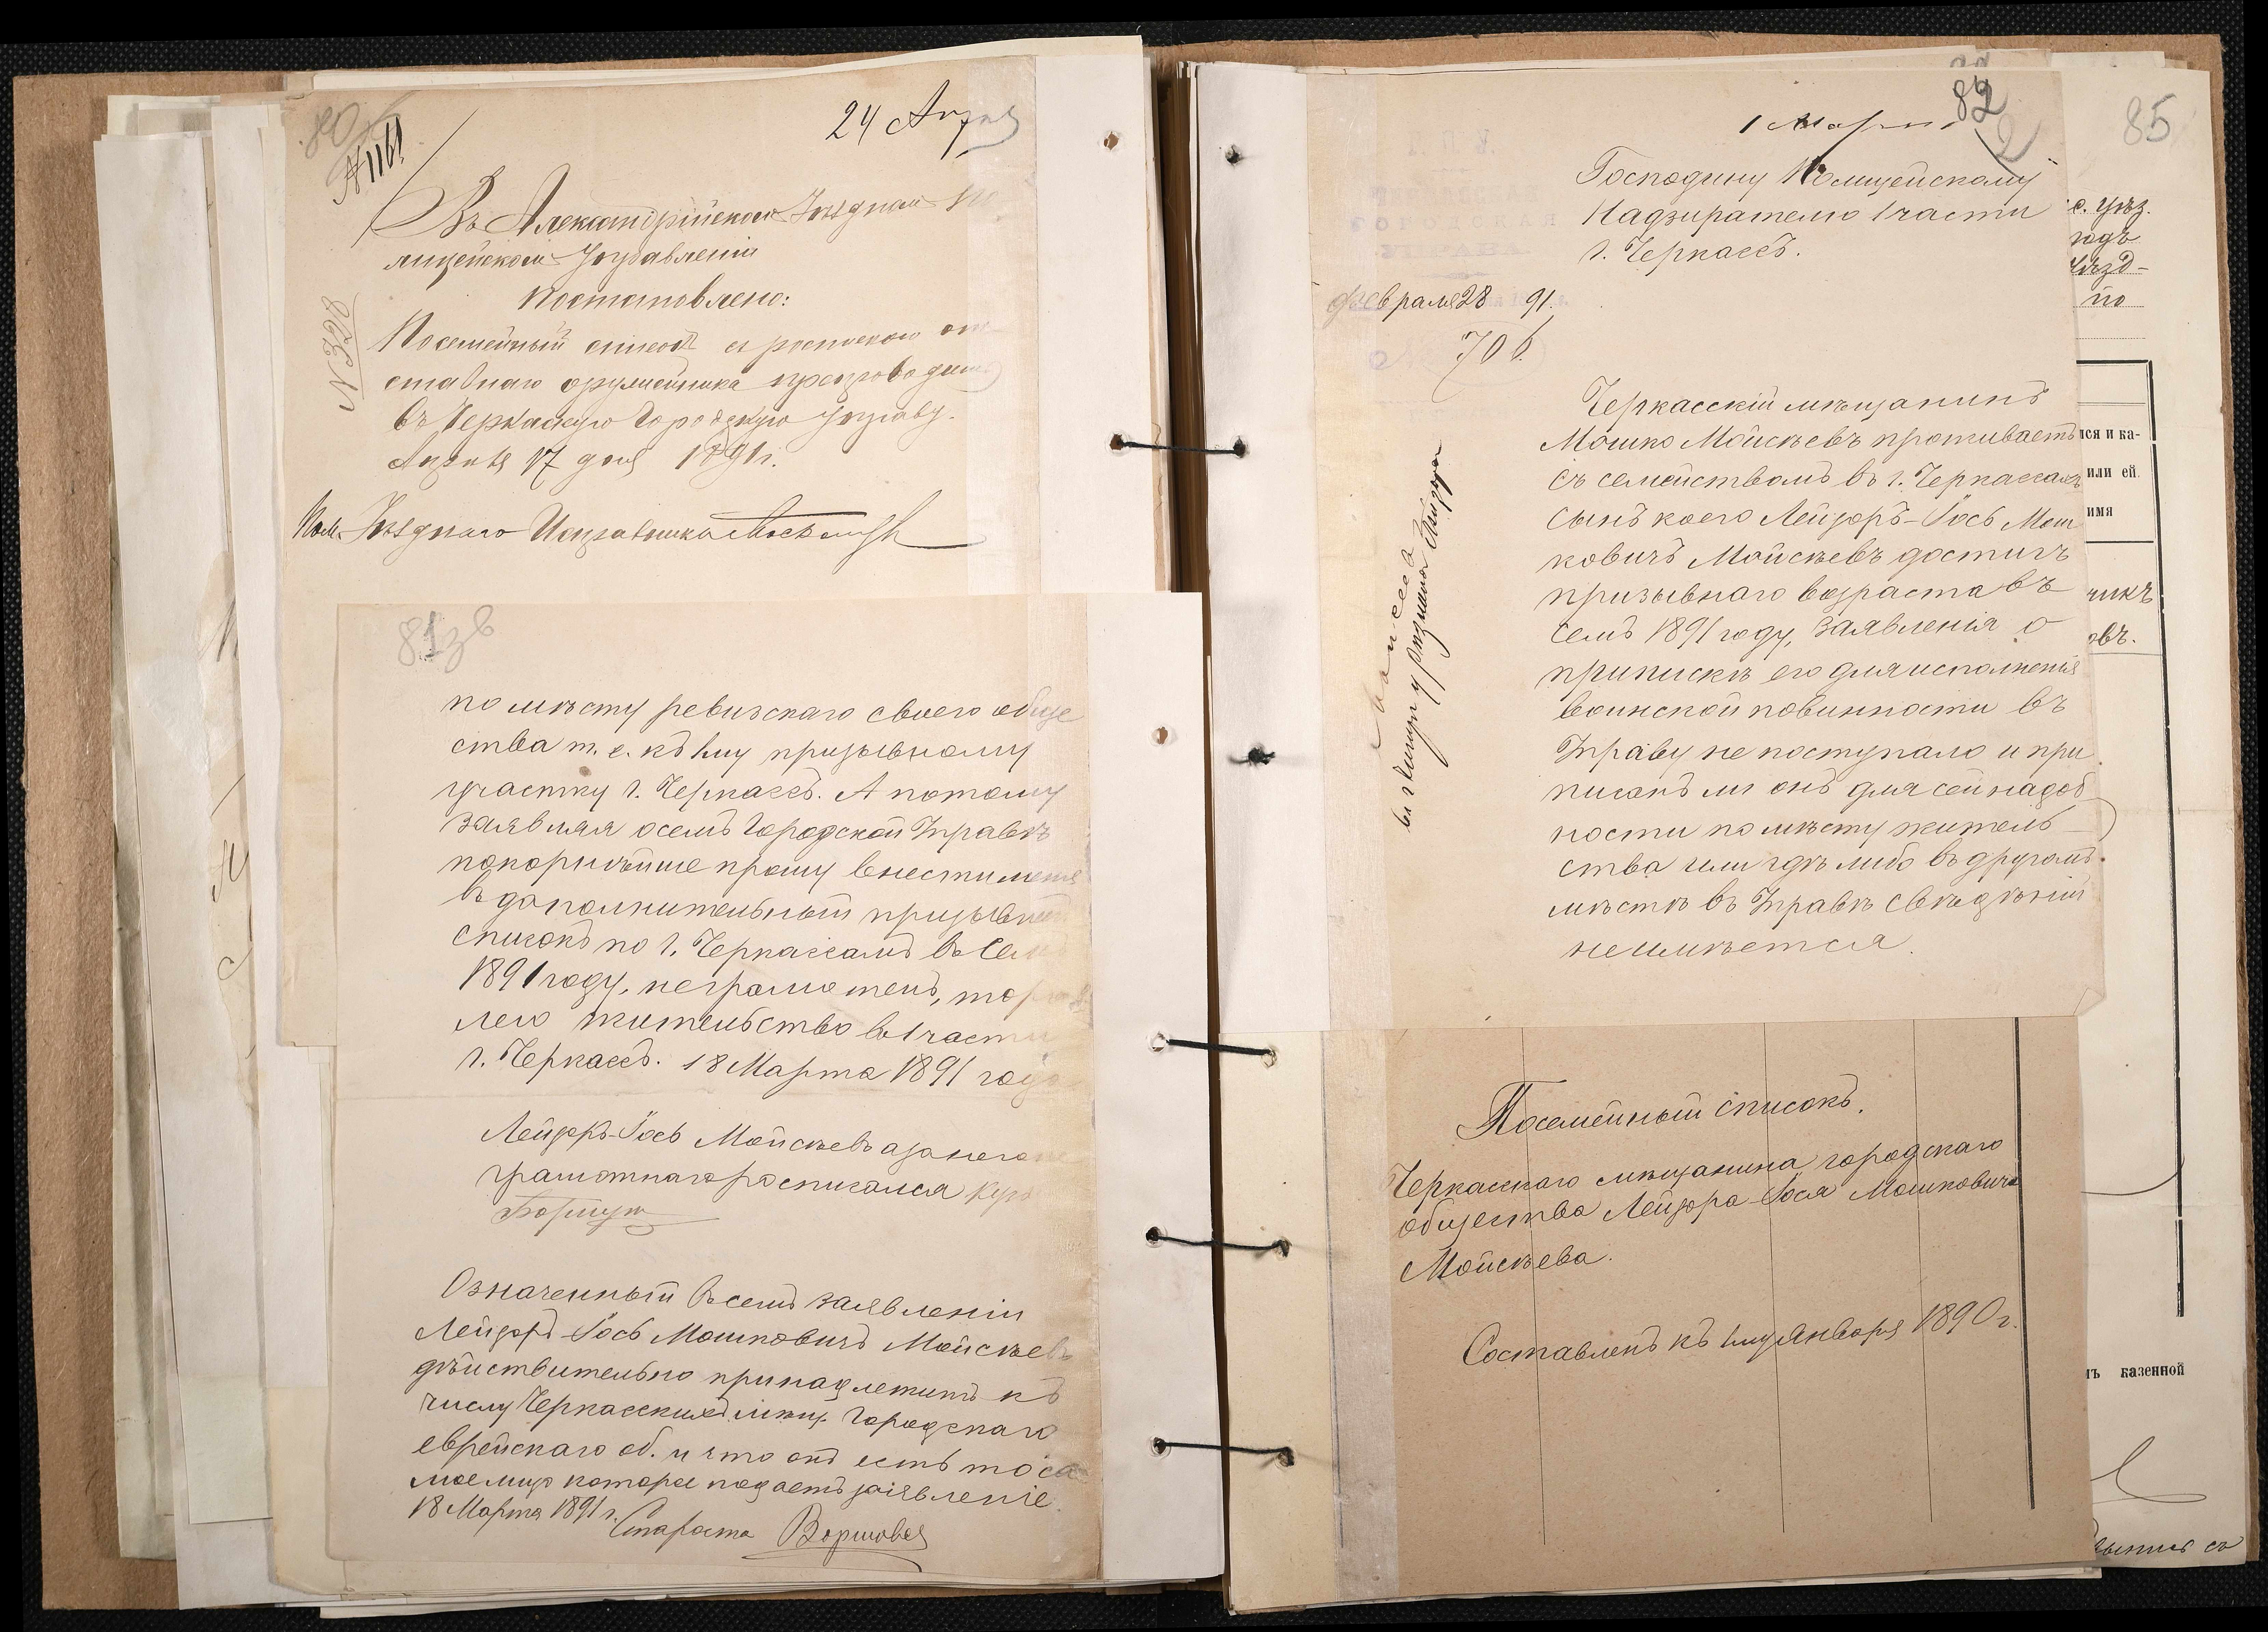 80
N 1161
24 Апрля
Въ Александрійскомъ Уѣздномъ По
лицейскомъ Управленіи
Постановлено:
N 328
Посемейный списокъ съ роспискою от
ставнаго
препроводить
въ Черкаскую Городскую Управу.
Апрѣля 17 дня 1891 г.
Пом. Уѣзднаго Исправника
81 зв
по мѣсту ревизскаго своего обще
ства т. е. къ 1му призывному
участку г. Черкассъ. А потому
заявляя о семъ Городской Управѣ
покорнѣйше прошу внести меня
въ дополнительный призывной
списокъ по г. Черкассамъ въ семъ
1891 году, неграмотенъ,
жительство въ 1 части
г. Черкассъ. 18 Марта 1891 года
Лейзоръ-Іось Мойсѣевъ а за него не
грамотнаго росписался
Означенный въ семъ заявленіи
Лейзоръ-Іось Мошковичъ Мойсѣевъ
дѣйствительно принадлежитъ къ
числу Черкасскихъ мѣщ. Городскаго
еврейскаго об. и что онъ есть то са
мое лицо которое подаетъ заявленіе.
18 Марта 1891 г.
Староста
82
1 Марта
Господину Полицейскому
Надзирателю 1 части
г. Черкассъ.
Февраля 28 91.
706.
Черкасскій мѣщанинъ
Мошко Мойсѣевъ проживаетъ
съ семействомъ въ г. Черкассахъ
сынъ коего Лейзоръ-Іось Мош
ковичъ Мойсѣевъ достигъ
призывнаго возраста въ
семъ 1891 году, заявленія о
припискѣ его для исполненія
воинской повинности въ
Управу не поступало и при
писанъ ли онъ для сей надоб
ности по мѣсту житель
ства или гдѣ либо въ другомъ
мѣстѣ въ Управѣ свѣдѣній
не имѣется.
Посемейный списокъ.
Черкасскаго мѣщанина городскаго
общества Лейзора-Іося Мошковича
Мойсѣева.
Составленъ къ 1му Января 1890 г.
85
с. уѣз.
годъ
уѣзд-
по
ися и ка-
или ей
имя
чикъ
овъ.
казенной